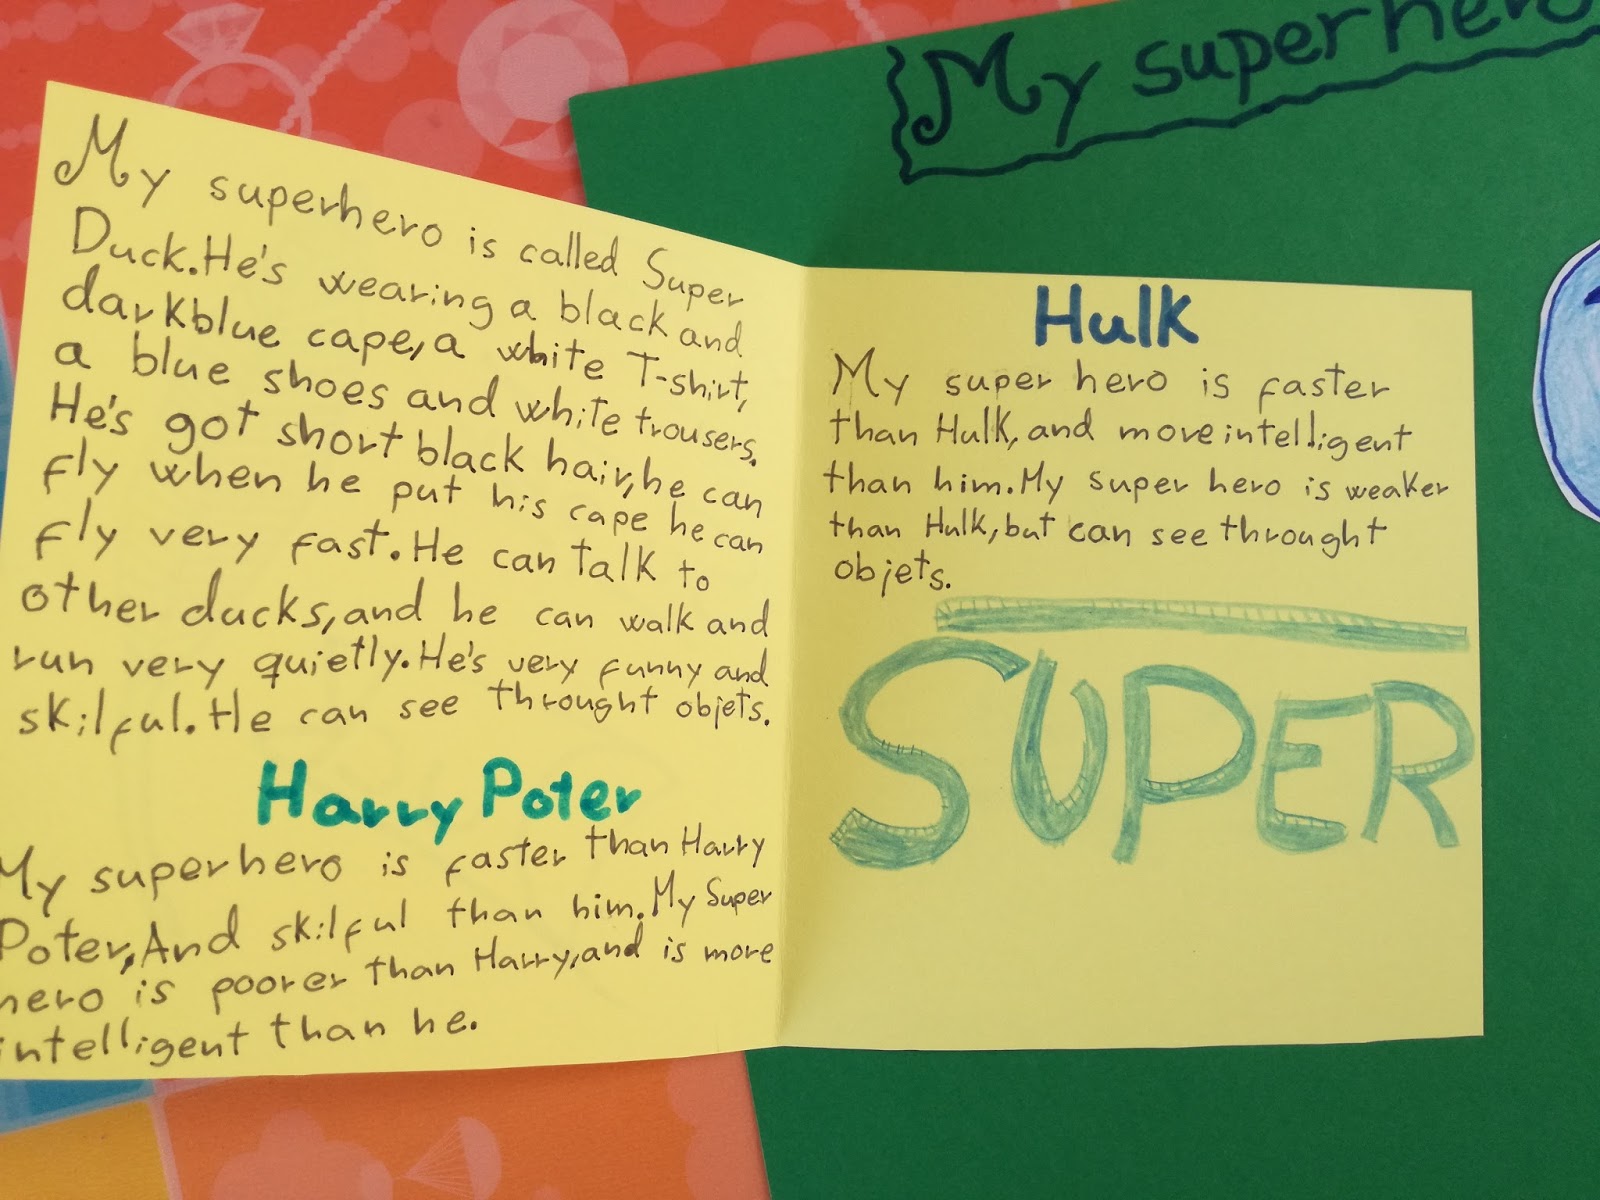 My superhero
My superhero is called Super
Duck. He's wearing a black and
darkblue cape, a white T-shirt,
a blue shoes and white trousers.
He's got short black hair, he can
fly when he put his cape he can
fly very fast. He can talk to
other ducks, and he can walk and
run very quietly. He's very funny and
skilful. He can see throught objets.
Harry Poter
My superhero is faster than Harry
Poter, And skilful than him. My Super
hero is poorer than Harry, and is more
intelligent than he.
Hulk
My super hero is faster
than Hulk, and more intelligent
than him. My super hero is weaker
than Hulk, but can see throught
objets.
SUPER